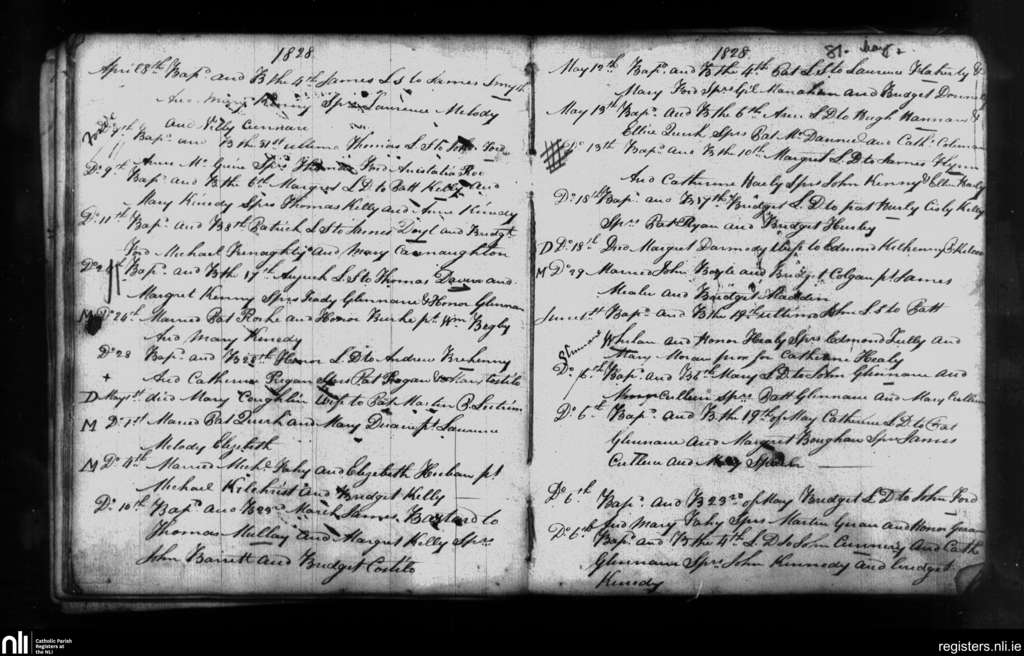 1828
April 8th Bapd and B the 4th James L S to James Smyth
And Mary Kenny Sprs Laurence Melody
And Nelly Cunnane
Bapd and B th 31st ultimo Thomas L S to Ford
Anne Mc Guin Sprs Thomas Ford Anistatia Roe
Do 9th Bapd and B the 6th Margret L D to Patt Kelly and
Mary Kinedy Sprs Thomas Kelly and Anne Kinedy
Do 11th Bapd and B 8th Patrick L S to James Doyl and Bridgt
Ford Michael Fenaghty and Mary Cannaughton
Bapd and B the 17th L S to Thomas and
Margret Kenny Sprs Glennane & Honor Glennan
M Do 26th Married Pat Roche and Honor Burke pt Wm Begly
And Mary Kenedy
Do 28 Bapd and B 28th Honor L D to Andrew Brehenny
+ And Catherine Regan Sprs Pat Rogan & Mary Costilo
D May 1st died Mary Coughlin Wife to Pat Martin B
M Do 1st Married Pat Quirk and Mary pt Laurence
Melody Elizebeth
M Do 4th Married Michl Fahy and Elizebeth pt
Michael Kilchrist and Bridget Kelly
Do 10th Bapd and B 23d March James Bastard to
Thomas Mullay and Margret Kelly Sprs
John Barrett and Bridget Costilo
1828 81. May
May 12th Bapd and B the 4th Pat L S to Laurence Flaherty &
Mary Ford Sprs Manahan and Bridget Donnelly
May 13th Bapd and B the 6th Ann L D to Hugh Hannan &
Ellie Quirk Sprs Pat Mc Dannel and Cath: Colman
Do 13th Bapd and B the 10th Margret L D to James Flynn
And Catherine Healy Sprs John Kenny & Ellen Healy
Do 15th Bapd and B 7th Bridget L D to pat Hurly Kelly
Sprs Pat Ryan and Bridget Hurley
D Do 18th Margret Darmody Wife to Edmond
M Do 29 Married John Boyle and Bridget Colgan pt James
Mealie and Bridget Madden
June 1st Bapd and B the 19th ultimo John L S to Patt
Whelan and Honor Healy Sprs Edmond Lully and
Mary Moran for Catherine Healy
Do 6th Bapd and B 6th Mary L D to John Glennane and
Cullen Sprs Patt Glennane and Mary Cullen
Do 6th Bapd and B the 19th of May Catherine L D to Pat
Glennane and Margret Boughan Sprs James
Cullen and Mary
Do 6th Bapd and B 23rd of May Bridget L D to John Ford
And Mary Fahy Sprs Martin and Honor
Do 6th Bapd and B the 4th L D to John and Cath
Glennane Sprs John Kennedy and bridget
Kenedy
nli Catholic Parish
Registers at
the NLI
registers.nli.ie